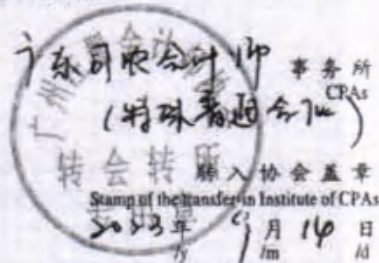 广东司农会计师 事务所
CPAs
(特殊普通合伙)
转会转所
转入协会盖章
Stamp of the transfer-in Institute of CPAs
2023年 月 14 日
/y /m /d